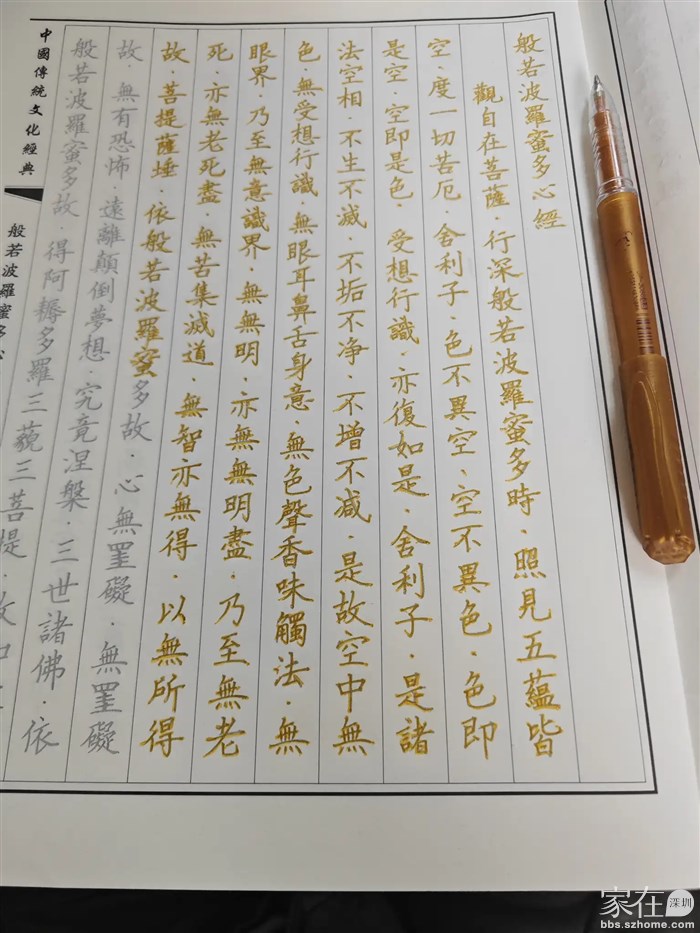 般若波羅蜜多心經
觀自在菩薩·行深般若波羅蜜多時·照見五蘊皆
空·度一切苦厄·舍利子·色不異空·空不異色·色即
是空·空即是色·受想行識·亦復如是·舍利子·是諸
法空相·不生不滅·不垢不净·不增不减·是故空中無
色·無受想行識·無眼耳鼻舌身意·無色聲香味觸法·無
眼界·乃至無意識界·無無明·亦無無明盡·乃至無老
死·亦無老死盡·無苦集滅道·無智亦無得·以無所得
故·菩提薩埵·依般若波羅蜜多故·心無罣礙·無罣礙
故·無有恐怖·遠離顛倒夢想·究竟涅槃·三世諸佛·依
般若波羅蜜多故·得阿耨多羅三藐三菩提·故知
中國傳統文化經典
般若波羅蜜多心
家在深圳
bbs.szhome.com